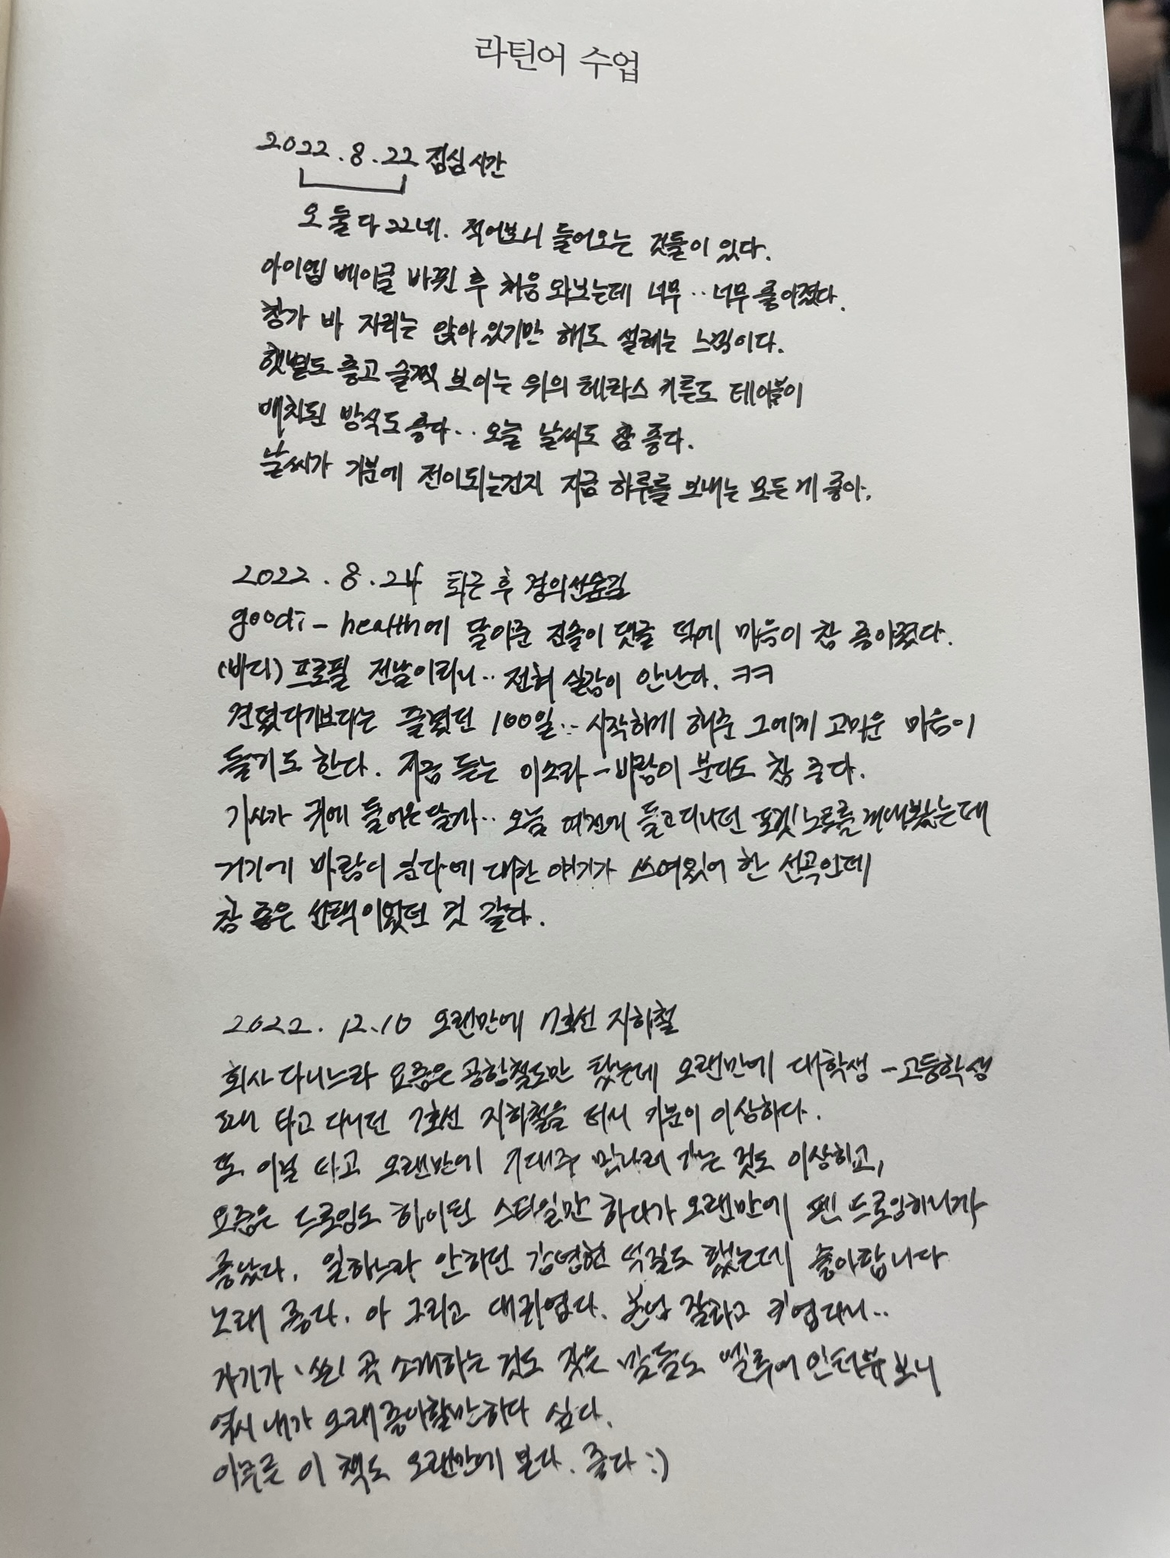 라틴어 수업
2022.8.22 점심시간
오 둘다 22네. 적어보니 들어오는 것들이 있다.
아이엠 베이글 바뀐 후 처음 와보는데 너무.. 너무 좋아졌다.
창가 바 자리는 앉아있기만 해도 설레는 느낌이다.
햇볕도 좋고 슬쩍 보이는 위의 테라스 키큰도 테이블이
배치된 방식도 좋다.. 오늘 날씨도 참 좋다.
날씨가 기분에 전이되는건지 지금 하루를 보내는 모든 게 좋아.
2022.8.24 퇴근 후 경의선숲길
goodi-health에 달아준 진솔이 댓글 덕에 마음이 참 좋아졌다.
(바디) 프로필 전날이라니.. 전혀 실감이 안난다. ㅋㅋ
견뎠다기보다는 즐겼던 100일.. 시작하게 해준 그에게 고마운 마음이
들기도 한다. 지금 듣는 이소라-바람이 분다도 참 좋다.
가사가 귀에 들어온달까.. 오늘 예전에 들고다니던 포켓노트를 꺼내봤는데
거기에 바람이 분다에 대한 얘기가 쓰여있어 한 선곡인데
참 좋은 선택이었던 것 같다.
2022.12.10 오랜만에 7호선 지하철
회사 다니느라 요즘은 공항철도만 탔는데 오랜만에 대학생-고등학생
때 타고 다니던 7호선 지하철을 타서 기분이 이상하다.
또 이걸 타고 오랜만에 기대주 만나러 가는 것도 이상하고,
요즘은 드로잉도 하이틴 스타일만 하다가 오랜만에 펜 드로잉하니까
좋았다. 일하느라 안하던 강연현 덕질도 했는데 좋아합니다
노래 좋다. 아 그리고 대귀엽다. 본업 잘하고 귀엽다니..
자기가 쓴 곡 소개하는 것도 적은 말들도 엘르에 인터뷰 보니
역시 내가 오래 좋아할만하다 싶다.
아무튼 이 책도 오랜만에 본다. 좋다 :)